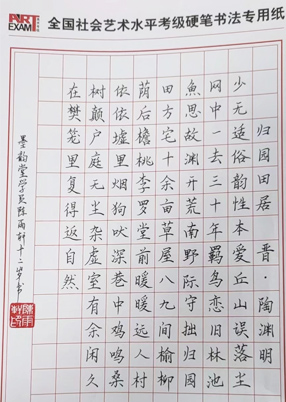 ART EXAM
全国社会艺术水平考级硬笔书法专用纸
归园田居 晋·陶渊明
少无适俗韵性本爱丘山误落尘
网中一去三十年羁鸟恋旧林池
魚思故渊开荒南野际守拙归园
田方宅十余亩草屋八九间榆柳
荫后檐桃李罗堂前暖暖远人村
依依墟里烟狗吠深巷中鸡鸣桑
树颠户庭无尘杂虚室有余闲久
在樊笼里复得返自然
墨韵堂学员陈雨轩十二岁书